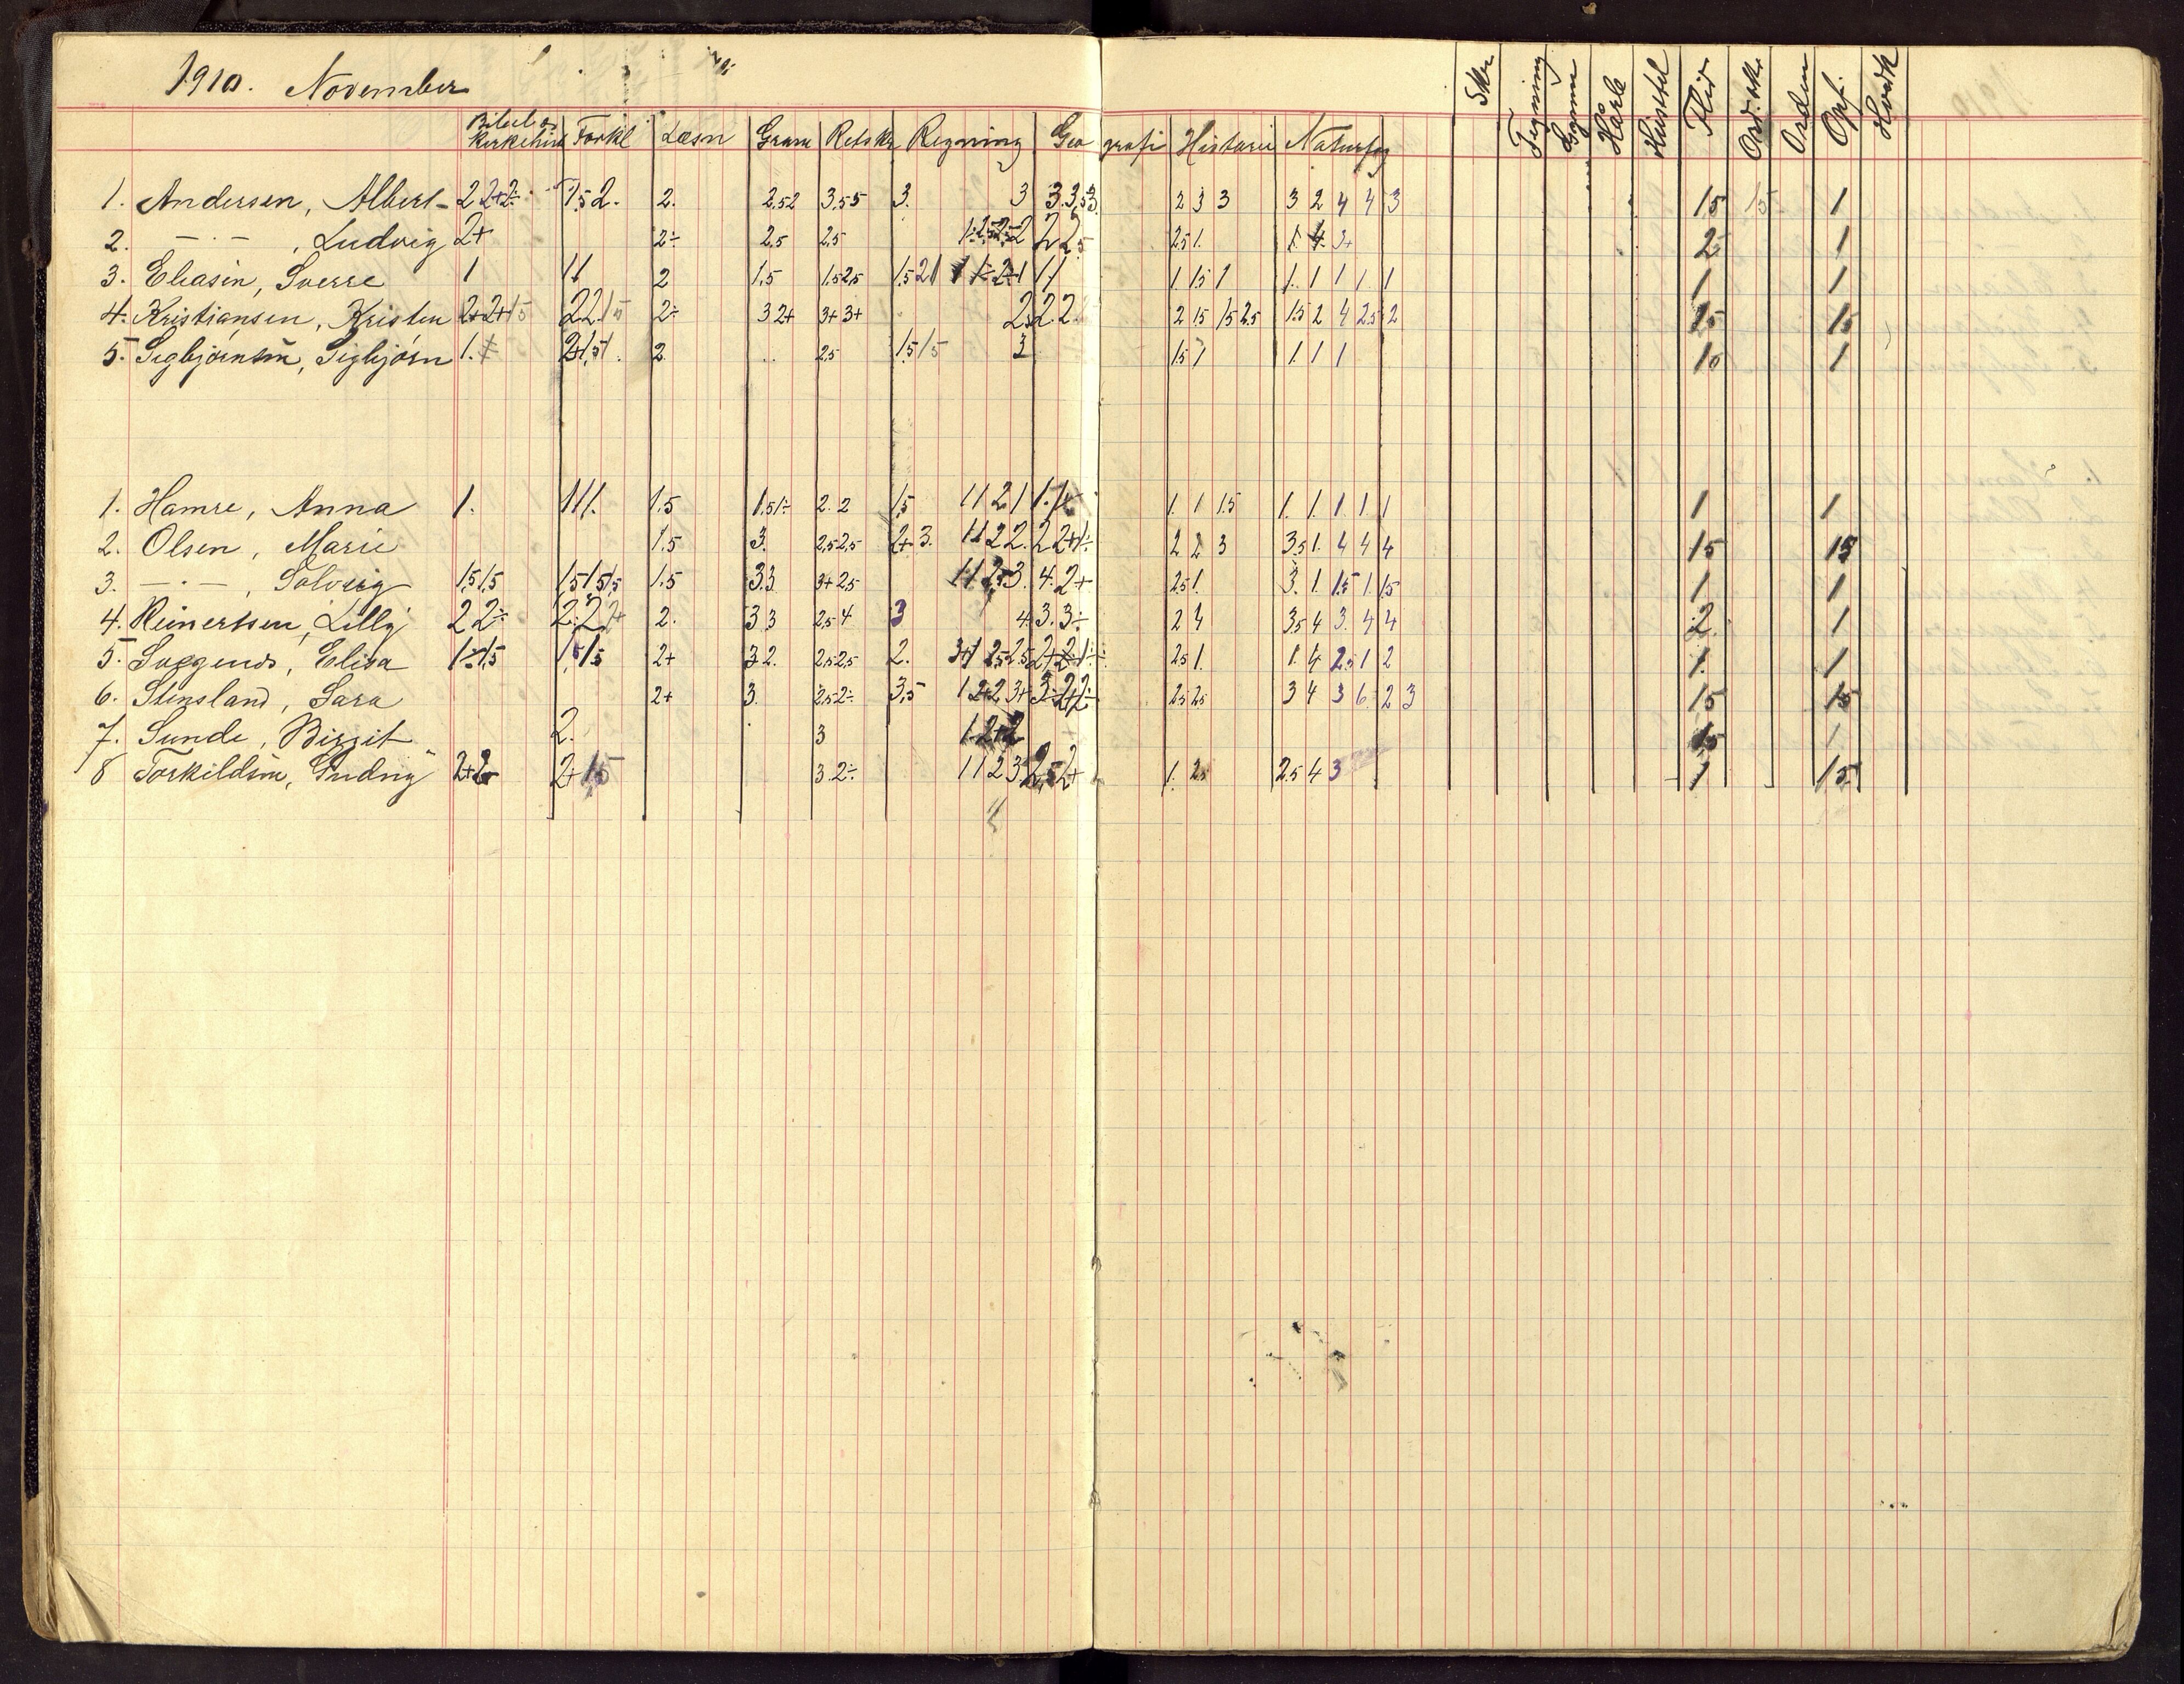 1910. November
Bibel og Kirkehist Forkl Læsn Gram Retskr Regning Geografi Historie Naturfag Skr Tegning Gymn Hårb Husstel Flid Ord.sk. Orden Opf. Hvordh
1. Andersen, Albert 2 2+2÷ 1,5 2. 2. 2,5 2 3,5 5 3. 3 3.3,5 3. 2 3 3 3 2 4 4 3 15 15 1
2. —·— , Ludvig 2+ 2÷ 2,5 2,5 2 2,5 2,5 1. 1. 4. 3+ 2 1
3. Eliasen, Sverre 1 11 2 1,5 1,5 2,5 1,5 2 1 1 1 1. 15 1 1. 1 1 1. 1 1 1
4. Kristiansen, Kristen 2+2+15 2 2 15 2÷ 3 2+ 3+3+ 2 2 2 2 15 15 2.5 15 2 4 2.5 2 15 15
5. Sigbjørnsen, Sigbjørn 1. 2+1,5 1. 2 2,5 15 15 3 15 1 1. 1 1 10 1
1. Hamre, Anna 1. 111. 1.5 1.5 1÷ 2. 2 1,5 1 1 2 1 1. 1. 1 1.5 1. 1. 1. 1 1 1 1
2. Olsen, Marie 1.5 3. 2,5 2,5 2+.3. 1 1 2 2. 2 2+1÷ 2 2 3 3.5 1. 4 4 4 15 15
3. —·— , Solveig 1,5 1,5 1,5 1,5 1,5 1.5 3.3 3+2,5 1 1 2,5 3. 4. 2+ 2.5 1. 3. 1 1.5 1. 15 1 1
4. Reinertsen, Lilly 2 2÷ 2. 2 2+ 2. 3 3 2,5 4 3 4 3. 3÷ 2 4 3.5 4 3. 4 4 2. 1
5. Svegends, Elisa 1÷1,5 1,5 1,5 2+ 3 2. 2,5 2,5 2. 3+1 2,5 2,5 2.5 1. 1. 4 2.5 1 2 1. 1
6. Stensland, Sara 2+ 3. 2,5 2÷ 3,5 1 2+2 3+ 2.5 2.5 3 4 3 6 2 3 15 15
7. Sunde, Birgit 2. 3 1 2+2 15 1
8 Torkildsen, Gudny 2+2 2+15 3 2÷ 1 1 2 3 2,5 2+ 1. 2.5 2.5 4 3 1 15